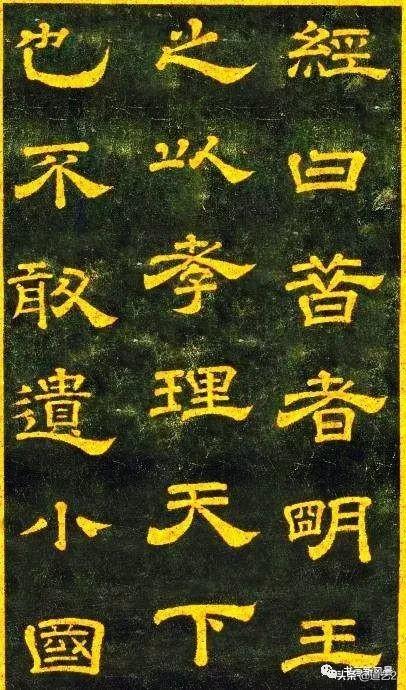 經曰昔者明王
之以孝理天下
也不敢遺小國